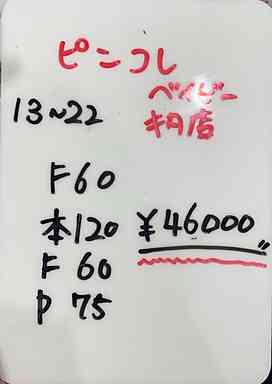 ピンコレ
ベイビー
13~22
本店
F60
本120 ¥46000
F 60
P 75